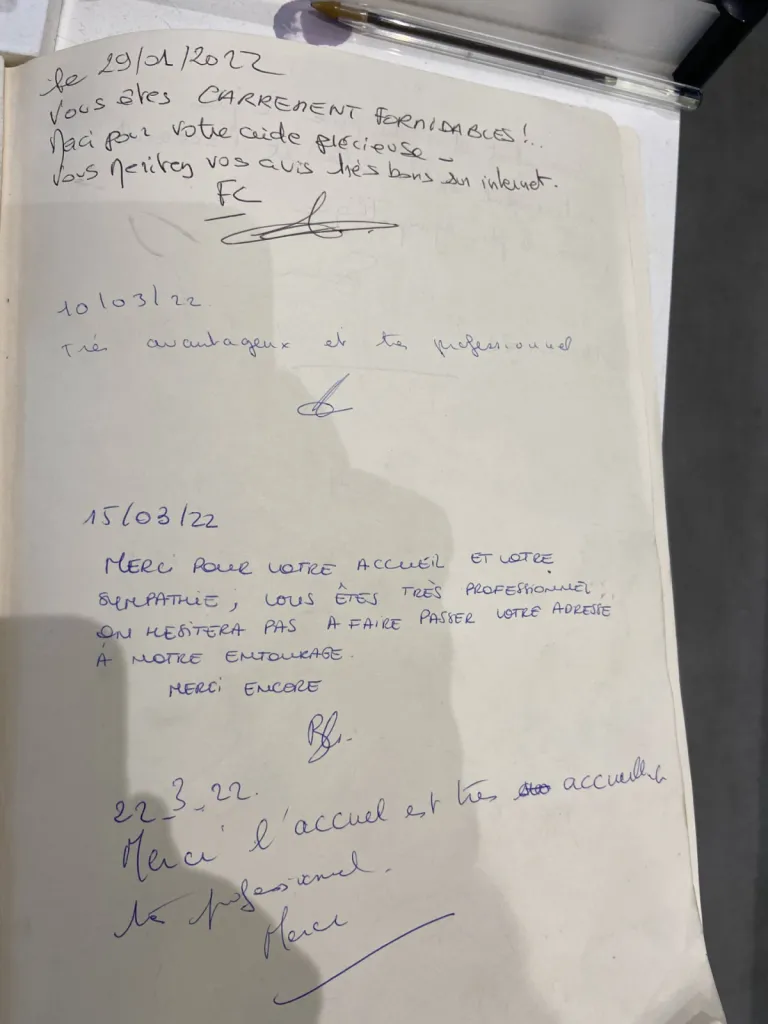 le 29/01/2022
Vous êtes CARREMENT FORMIDABLES!..
Merci pour votre aide précieuse –
Vous méritez vos avis très bons sur internet.
FC
10/03/22
Très avantageux et très professionnel
15/03/22
MERCI POUR VOTRE ACCUEIL ET VOTRE
SYMPATHIE, VOUS ÊTES TRÈS PROFESSIONNEL,
ON HESITERA PAS A FAIRE PASSER VOTRE ADRESSE
À NOTRE ENTOURAGE.
MERCI ENCORE
22_3_22.
Merci l'accuel est très accueillant
très professionnel.
Merci